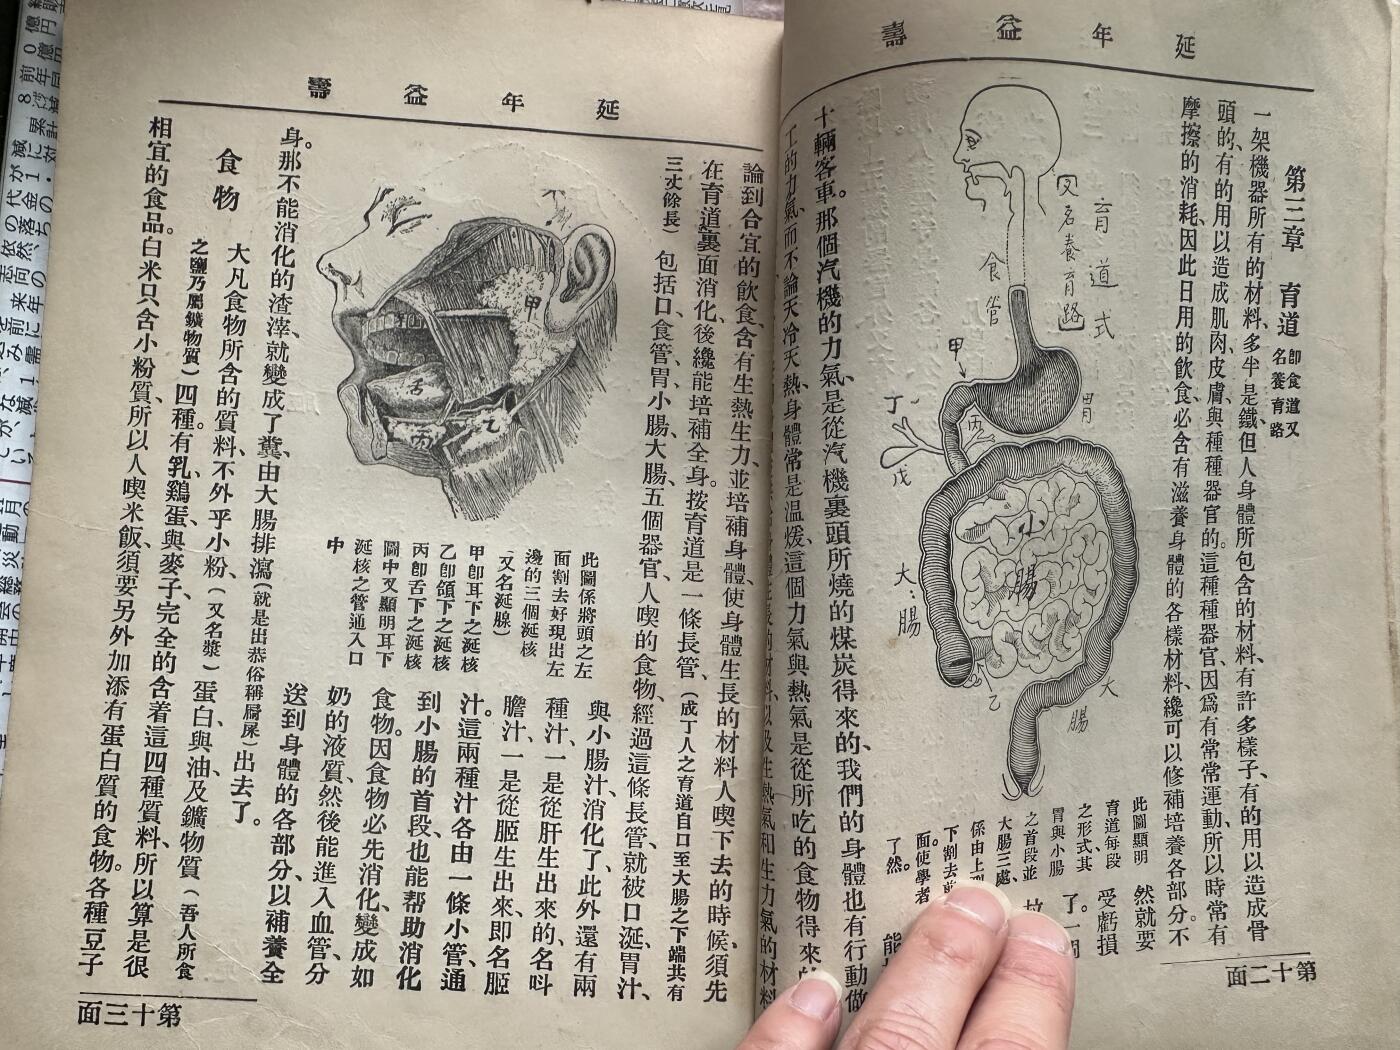 延年益壽
第三章 育道 卽食道又名養育路
一架機器所有的材料、多半是鐵、但人身體所包含的材料、有許多樣子、有的用以造成骨
頭的、有的用以造成肌肉皮膚、與種種器官的。這種種器官、因爲有常常運動、所以時常有
摩擦的消耗、因此日用的飲食、必含有滋養身體的各樣材料、纔可以修補培養各部分。不
然就要
受虧損
了。一
育道式
又名養育路
食管
胃
甲
丙
丁
戊
小腸
大腸
乙
大腸
此圖顯明
育道每段
之形式、其
胃與小腸
之首段並
大腸三處、
係由上
下割去
面使學者
了然。
十輛客車。那個汽機的力氣、是從汽機裏頭所燒的煤炭得來的、我們的身體也有行動做
工的力氣、而不論天冷天熱、身體常是温煖、這個力氣與熱氣是從所吃的食物得來
第十二面
延年益壽
論到合宜的飲食、含有生熱生力、並培補身體、使身體生長的材料、人喫下去的時候、須先
在育道裏面消化、後纔能培補全身。按育道是一條長管、(成丁人之育道自口至大腸之下端共有
三丈餘長)包括口、食管、胃、小腸、大腸、五個器官、人喫的食物、經過這條長管、就被口涎、胃汁、
與小腸汁消化了、此外還有兩
種汁、一是從肝生出來的、名呌
膽汁、一是從𦜝生出來、即名𦜝
汁。這兩種汁各由一條小管、通
到小腸的首段、也能帮助消化
食物。因食物必先消化、變成如
奶的液質、然後能進入血管、分
送到身體的各部分、以補養全
甲
舌
丙
乙
此圖係將頭之左
面割去好現出左
邊的三個涎核
(又名涎腺)
甲卽耳下之涎核
乙卽頜下之涎核
丙卽舌下之涎核
圖中又顯明耳下
涎核之管通入口
中
身。那不能消化的渣滓、就變成了糞、由大腸排瀉(就是出恭俗稱屙屎)出去了。
食物 大凡食物所含的質料、不外乎小粉、(又名漿)蛋白、與油、及鑛物質(吾人所食
之鹽乃屬鑛物質)四種。有乳、鷄蛋、與麥子、完全的含着這四種質料、所以算是很
相宜的食品。白米只含小粉質、所以人喫米飯、須要另外加添有蛋白質的食物。各種豆子
第十三面